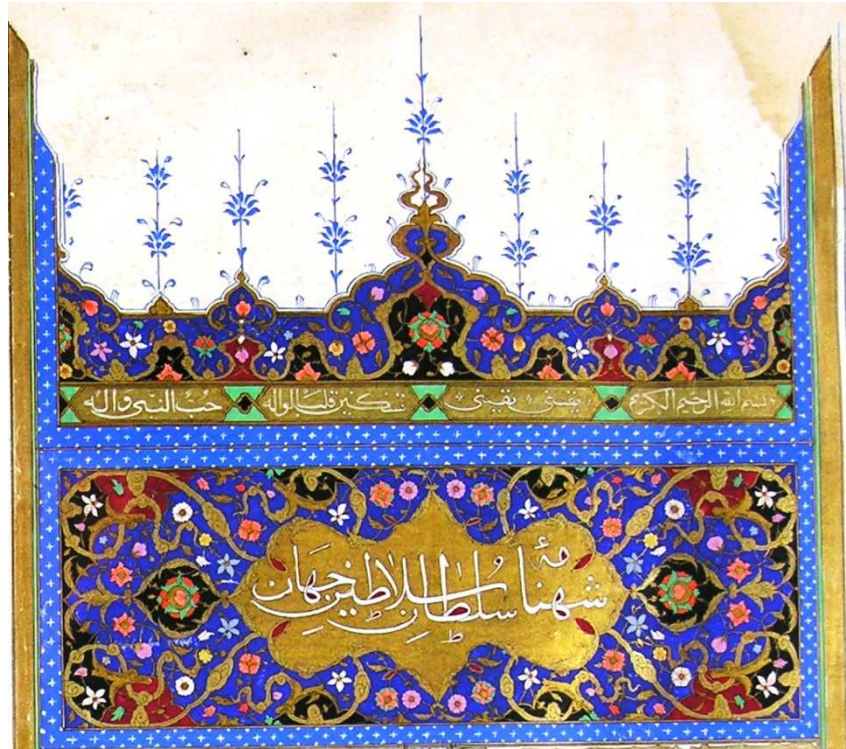 بسم الله الرحیم الکریم یقینی یقینی تسکین قلب الواله حب النبی و اله
شهنامهٔ سلطان سلاطین جهان